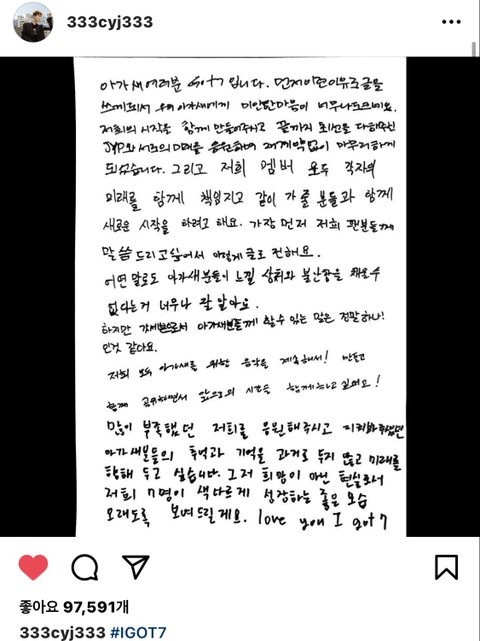 333cyj333
아가새여러분 GOT7 입니다. 먼저 이런 이유로 글을
쓰게 되서 우리 아가새에게 미안한 마음이 너무나 드네요.
저희의 시작을 함께 만들어주시고 끝까지 최선을 다해주신
JYP와 서로의 미래를 응원하며 재계약없이 마무리하게
되었습니다. 그리고 저희 멤버 모두 각자의
미래를 함께 책임지고 같이 가 줄 분들과 함께
새로운 시작을 하려고 해요. 가장 먼저 저희 팬분들께
말씀드리고 싶어서 이렇게 글로 전해요.
어떤 말로도 아가새분들이 느낄 상처와 불안함을 채울수
없다는거 너무나 잘 알아요.
하지만 갓세븐으로서 아가새분들께 할수 있는 말은 정말 하나!
인것 같아요.
저희 모두 아가새를 위한 음악을 계속해서! 만들고
함께 공유하면서 앞으로의 시간을 함께하고 싶어요!
많이 부족했던 저희를 응원해주시고 지켜봐주셨던
아가새분들의 추억과 기억을 과거로 두지 않고 미래를
향해 두고 싶습니다. 그저 희망이 아닌 현실로서
저희 7명이 색다르게 성장하는 좋은 모습
오래도록 보여드릴게요. love you I got 7
좋아요 97,591개
333cyj333 #IGOT7